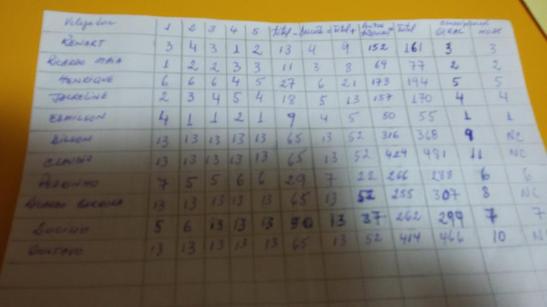 Velejador 1 2 3 4 5 total - = total +
RENART 3 4 3 1 2 13 4 9 152 161 3 3
RICARDO MAIA 1 2 2 3 3 11 3 8 69 77 2 2
HENRIQUE 6 6 6 4 5 27 6 21 173 194 5 5
JACKELINE 2 3 4 5 4 18 5 13 157 170 4 4
EDMILSON 4 1 1 2 1 9 4 5 50 55 1 1
13 13 13 13 13 65 13 52 316 368 9 NC
CLAUDIO 13 13 13 13 13 65 13 52 429 481 11 NC
7 5 5 6 6 29 7 22 266 288 6 6
RICARDO 13 13 13 13 13 65 13 52 255 307 8 NC
5 6 13 13 13 50 13 37 262 299 7 7
GUSTAVO 13 13 13 13 13 65 13 52 414 466 10 NC